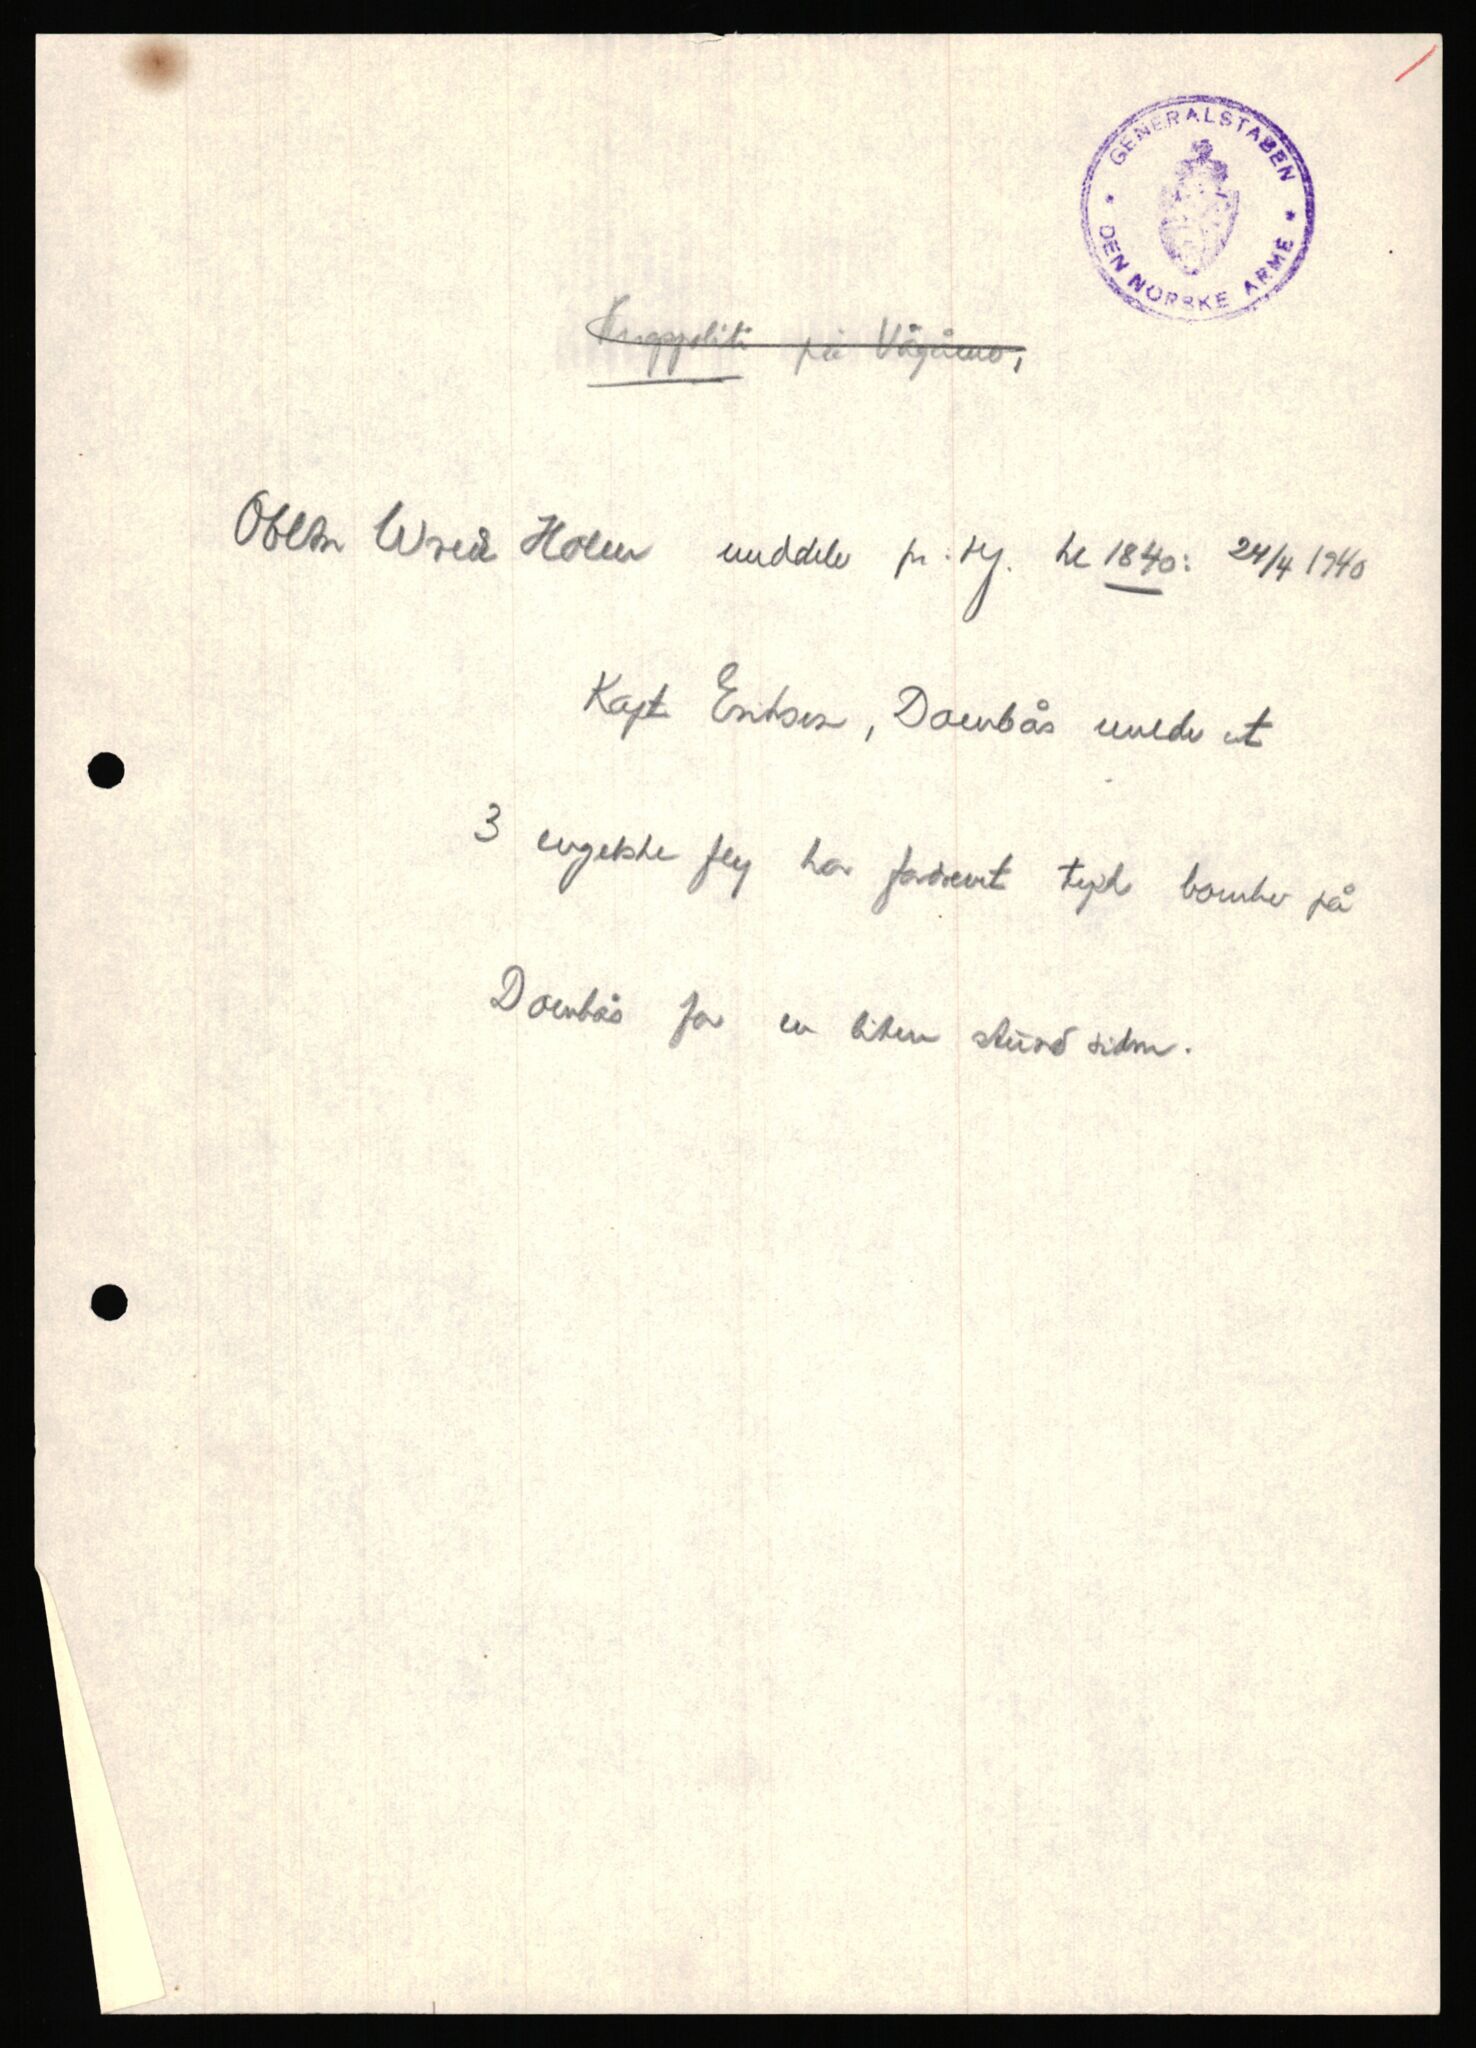 GENERALSTABEN
* DEN NORSKE ARME *
på Vågåmo,
Obltn Wrede Holm meddeler pr. tlf. kl 1840: 24/4 1940
Kapt Eriksen, Dombås melder at
3 engelske fly har forsvunnet bomber på
Dombås for en liten stund siden.